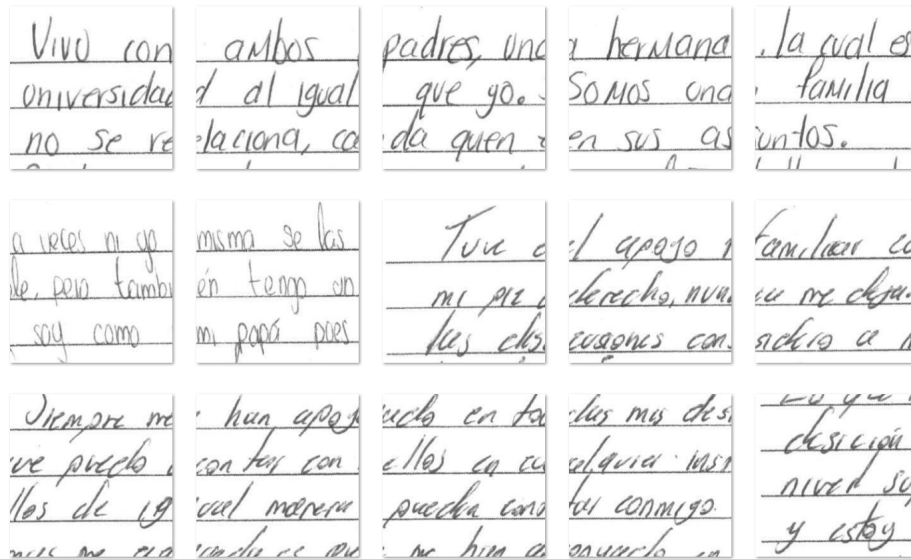 Vivo con ambos padres, una hermana, la cual es
universidad al igual que yo. Somos una familia
no se relaciona, cada quen en sus asuntos.
a veces ni yo misma se las
le, pero también tengo un
soy como mi papá pues
Tuve el apoyo familiar
mi pie derecho, me deja
las considero a
Siempre me han apoyado en todas mis des
ve puedo contar con ellos en cualquier inst
llos de igual manera pueden contar conmigo.
desición
nivel su
y estoy